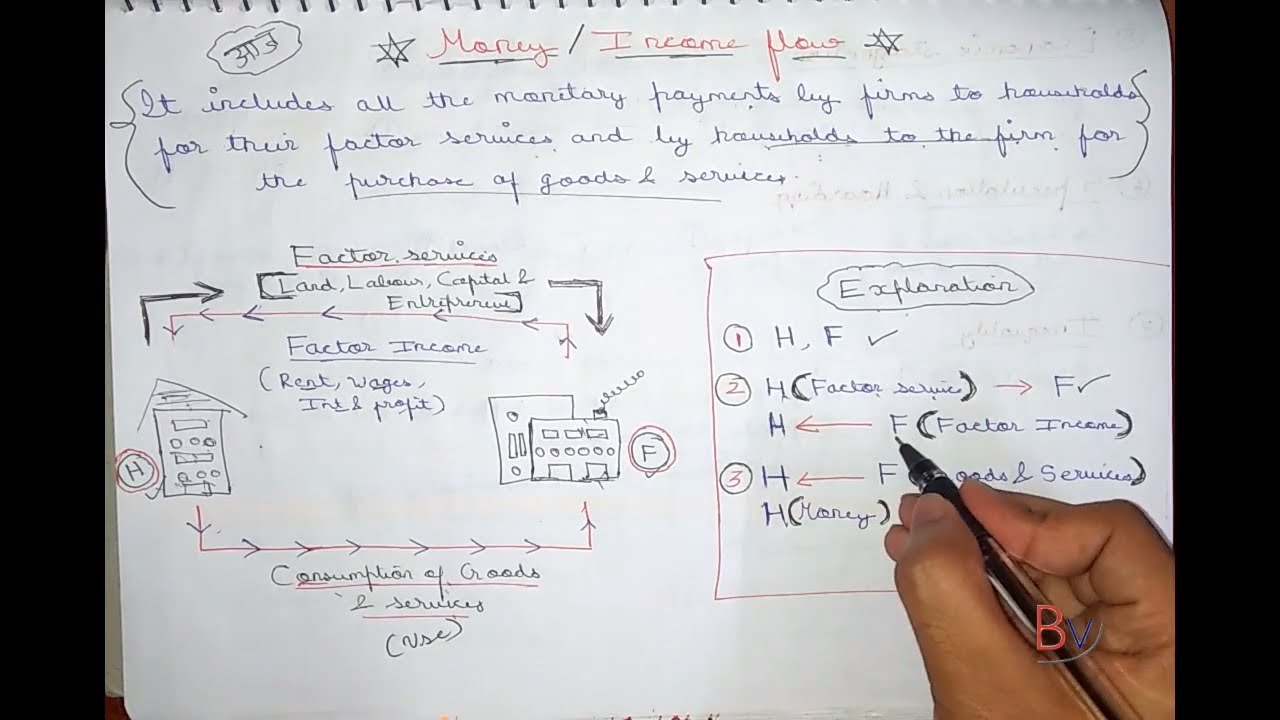 आज
Money / Income flow
It includes all the monetary payments by firms to households
for their factor services and by households to the firm for
the purchase of goods & services.
Factor services
[Land, Labour, Capital &
Entrepreneur]
Factor Income
(Rent, Wages,
Int & profit)
H
F
Consumption of Goods
& services
(Use)
Explanation
1 H, F ✓
2 H (Factor service) → F ✓
H ← F (Factor Income)
3 H ← F oods & Services)
H (Money)
BV